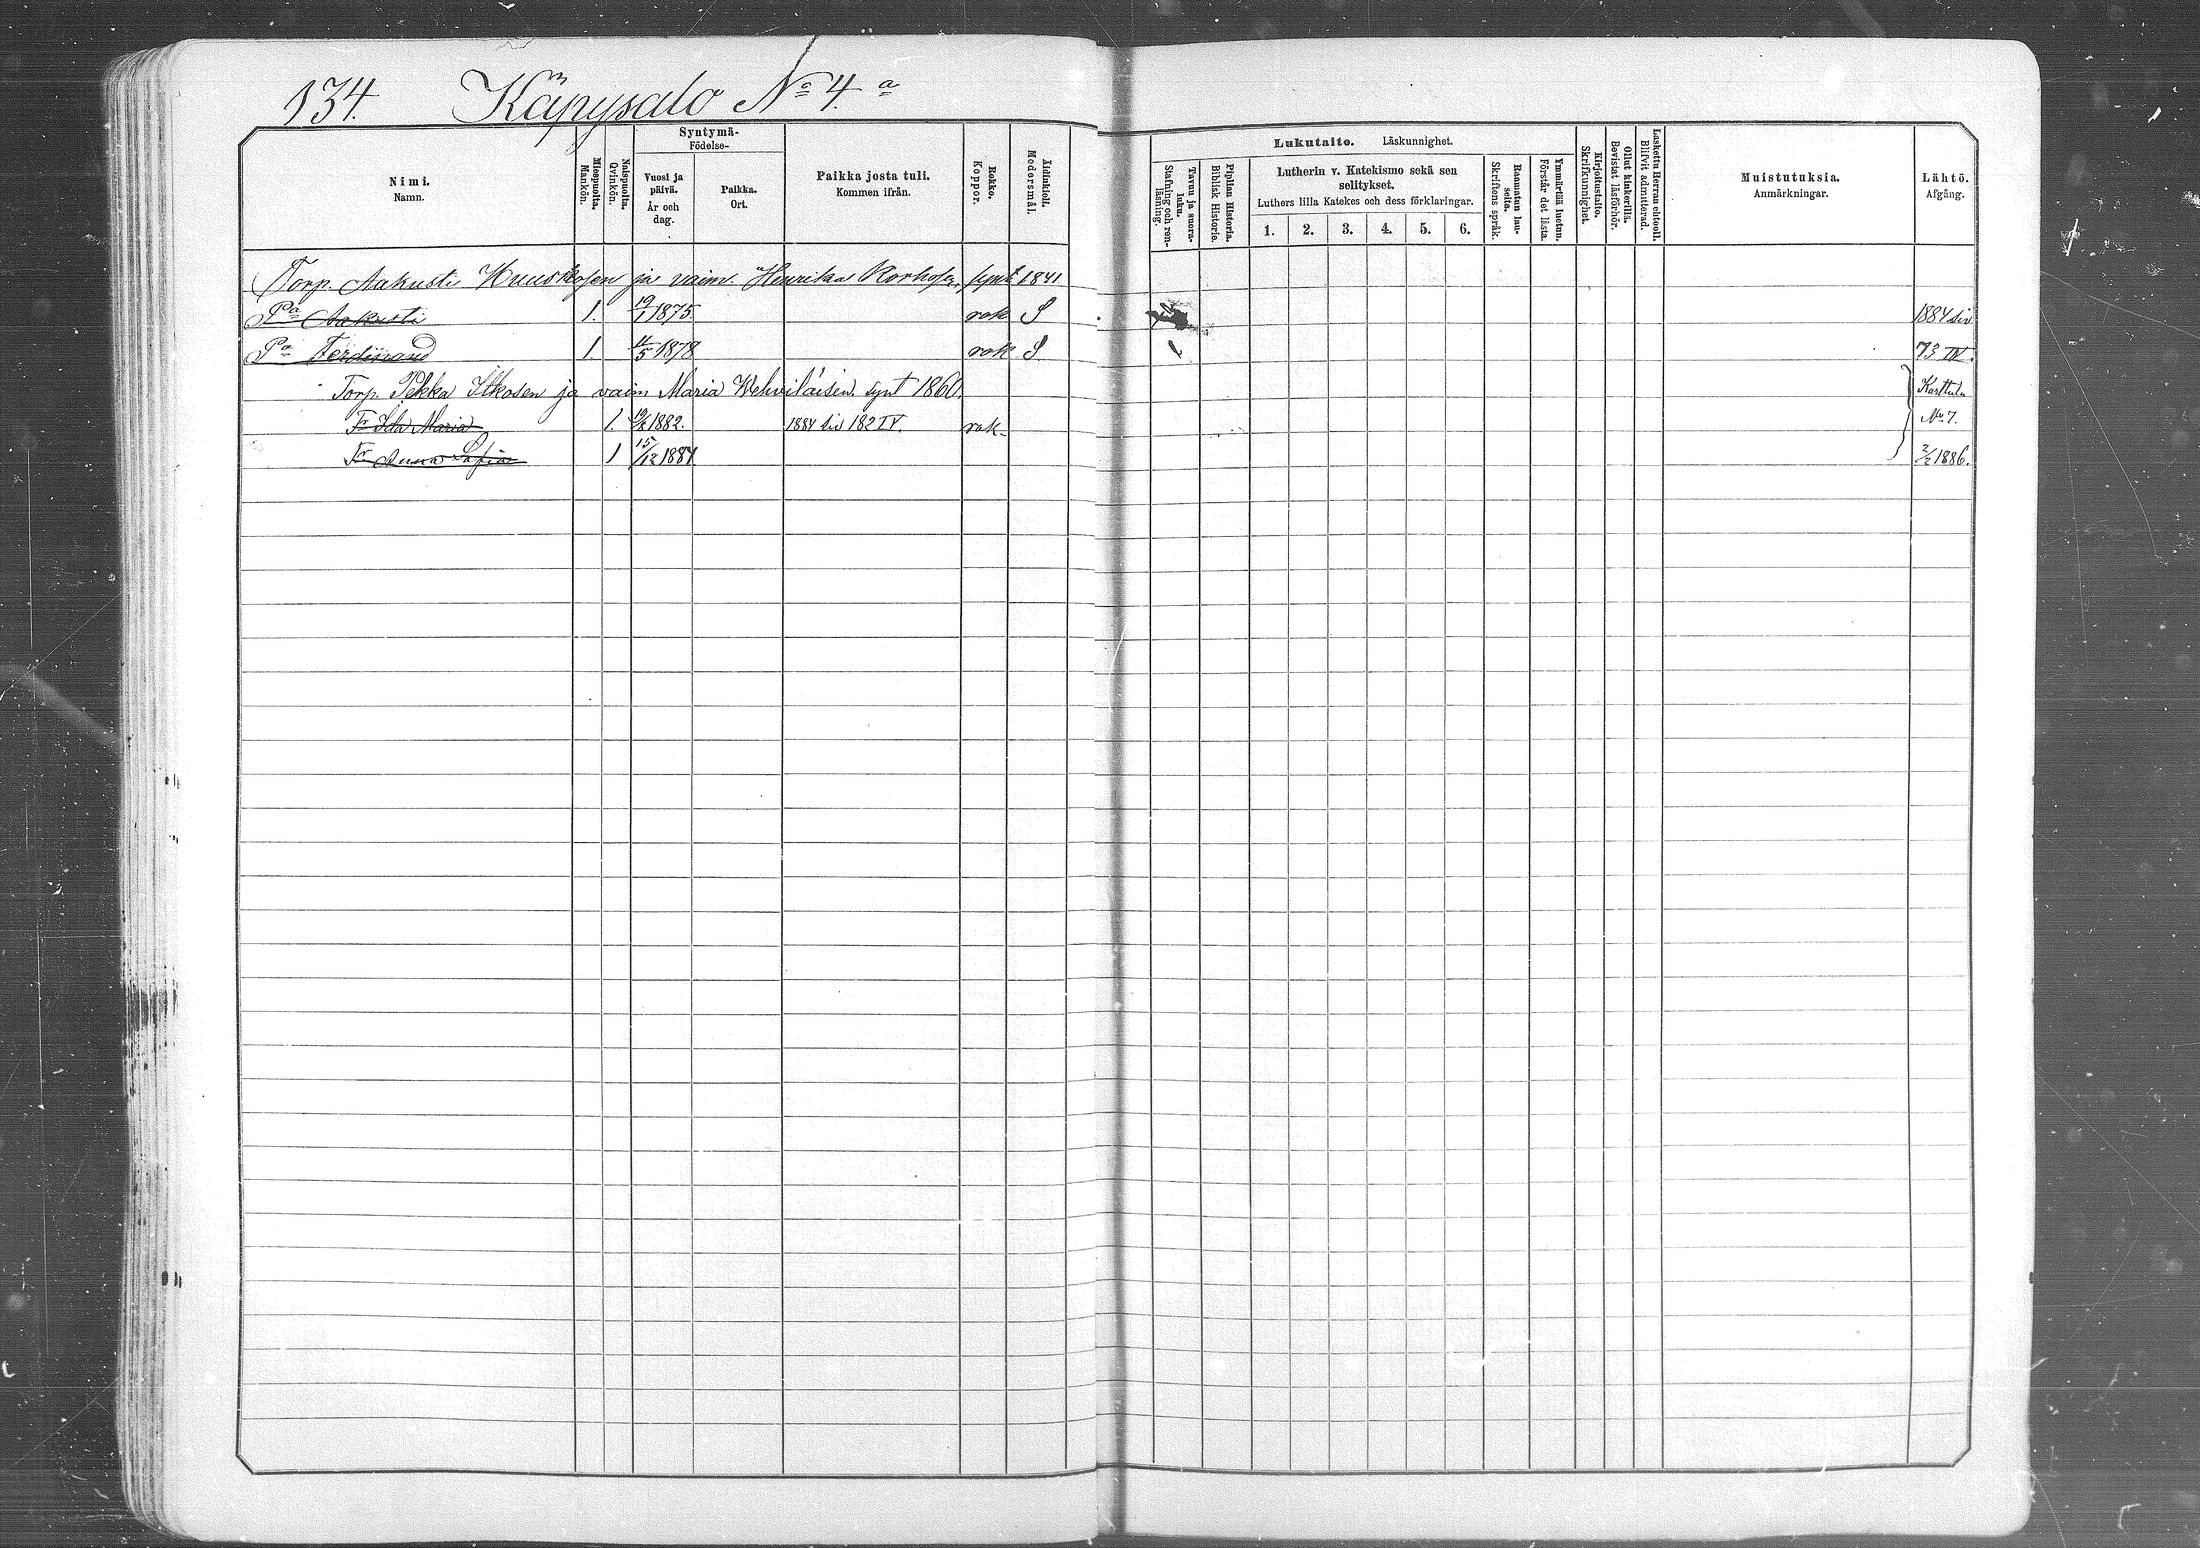 134. Käpysalo No 4. a
Syntymä-
Födelse-
Nimi.
Namn.
Miespuolta.
Mankön.
Naispuolta.
Qvinkön.
Vuosi ja
päivä.
År och
dag.
Paikka.
Ort.
Paikka josta tuli.
Kommen ifrån.
Rokko.
Koppor.
Äidinkieli.
Modersmål.
Lukutaito. Läskunnighet.
Tavuu ja suora-
luku.
Stafning och ren-
läsning.
Piplian Historia.
Biblisk Historie.
Lutherin v. Katekismo sekä sen
selitykset.
Luthers lilla Katekes och dess förklaringar.
1. 2. 3. 4. 5. 6.
Raamatun lau-
seita.
Skriftens språk.
Ymmärtää luetun.
Förstår det lästa.
Kirjoitustaito.
Skrifkunnighet.
Ollut kinkerillä.
Bevistat läsförhör.
Laskettu Herran ehtooll.
Blifvit admitterad.
Muistutuksia.
Anmärkningar.
Lähtö.
Afgång.
Torp. Aakusti Kuuskosen ja vaim. Henrika Korhosen, synt 1841
Pa Aakusti 1. 19/1 1875. rok S 1884 siv
Pa Ferdinand 1. 11/5 1878 rok S 73 IV.
Torp. Pekka Itkosen ja vaim Maria Wehviläisen synt 1860. Karttula
Tr Ida Maria 1. 1882. 1884 siv 182 IV. rok. No 7.
Tr Anna Sofia 1 15/12 1884 2/2 1886.